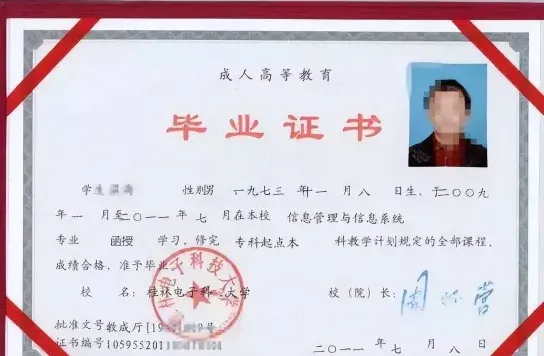 成人高等教育
毕业证书
学生 性别男 一九七三年十一月八日生,于二〇〇九
年一月至二〇一一年七月在本校 信息管理与信息系统
专业 函授 学习,修完 专科起点本 科教学计划规定的全部课程,
成绩合格,准予毕业
校名:桂林电子科 大学 校(院)长:
批准文号教成厅[19 号
证书编号105955201
二〇一一年七月八日